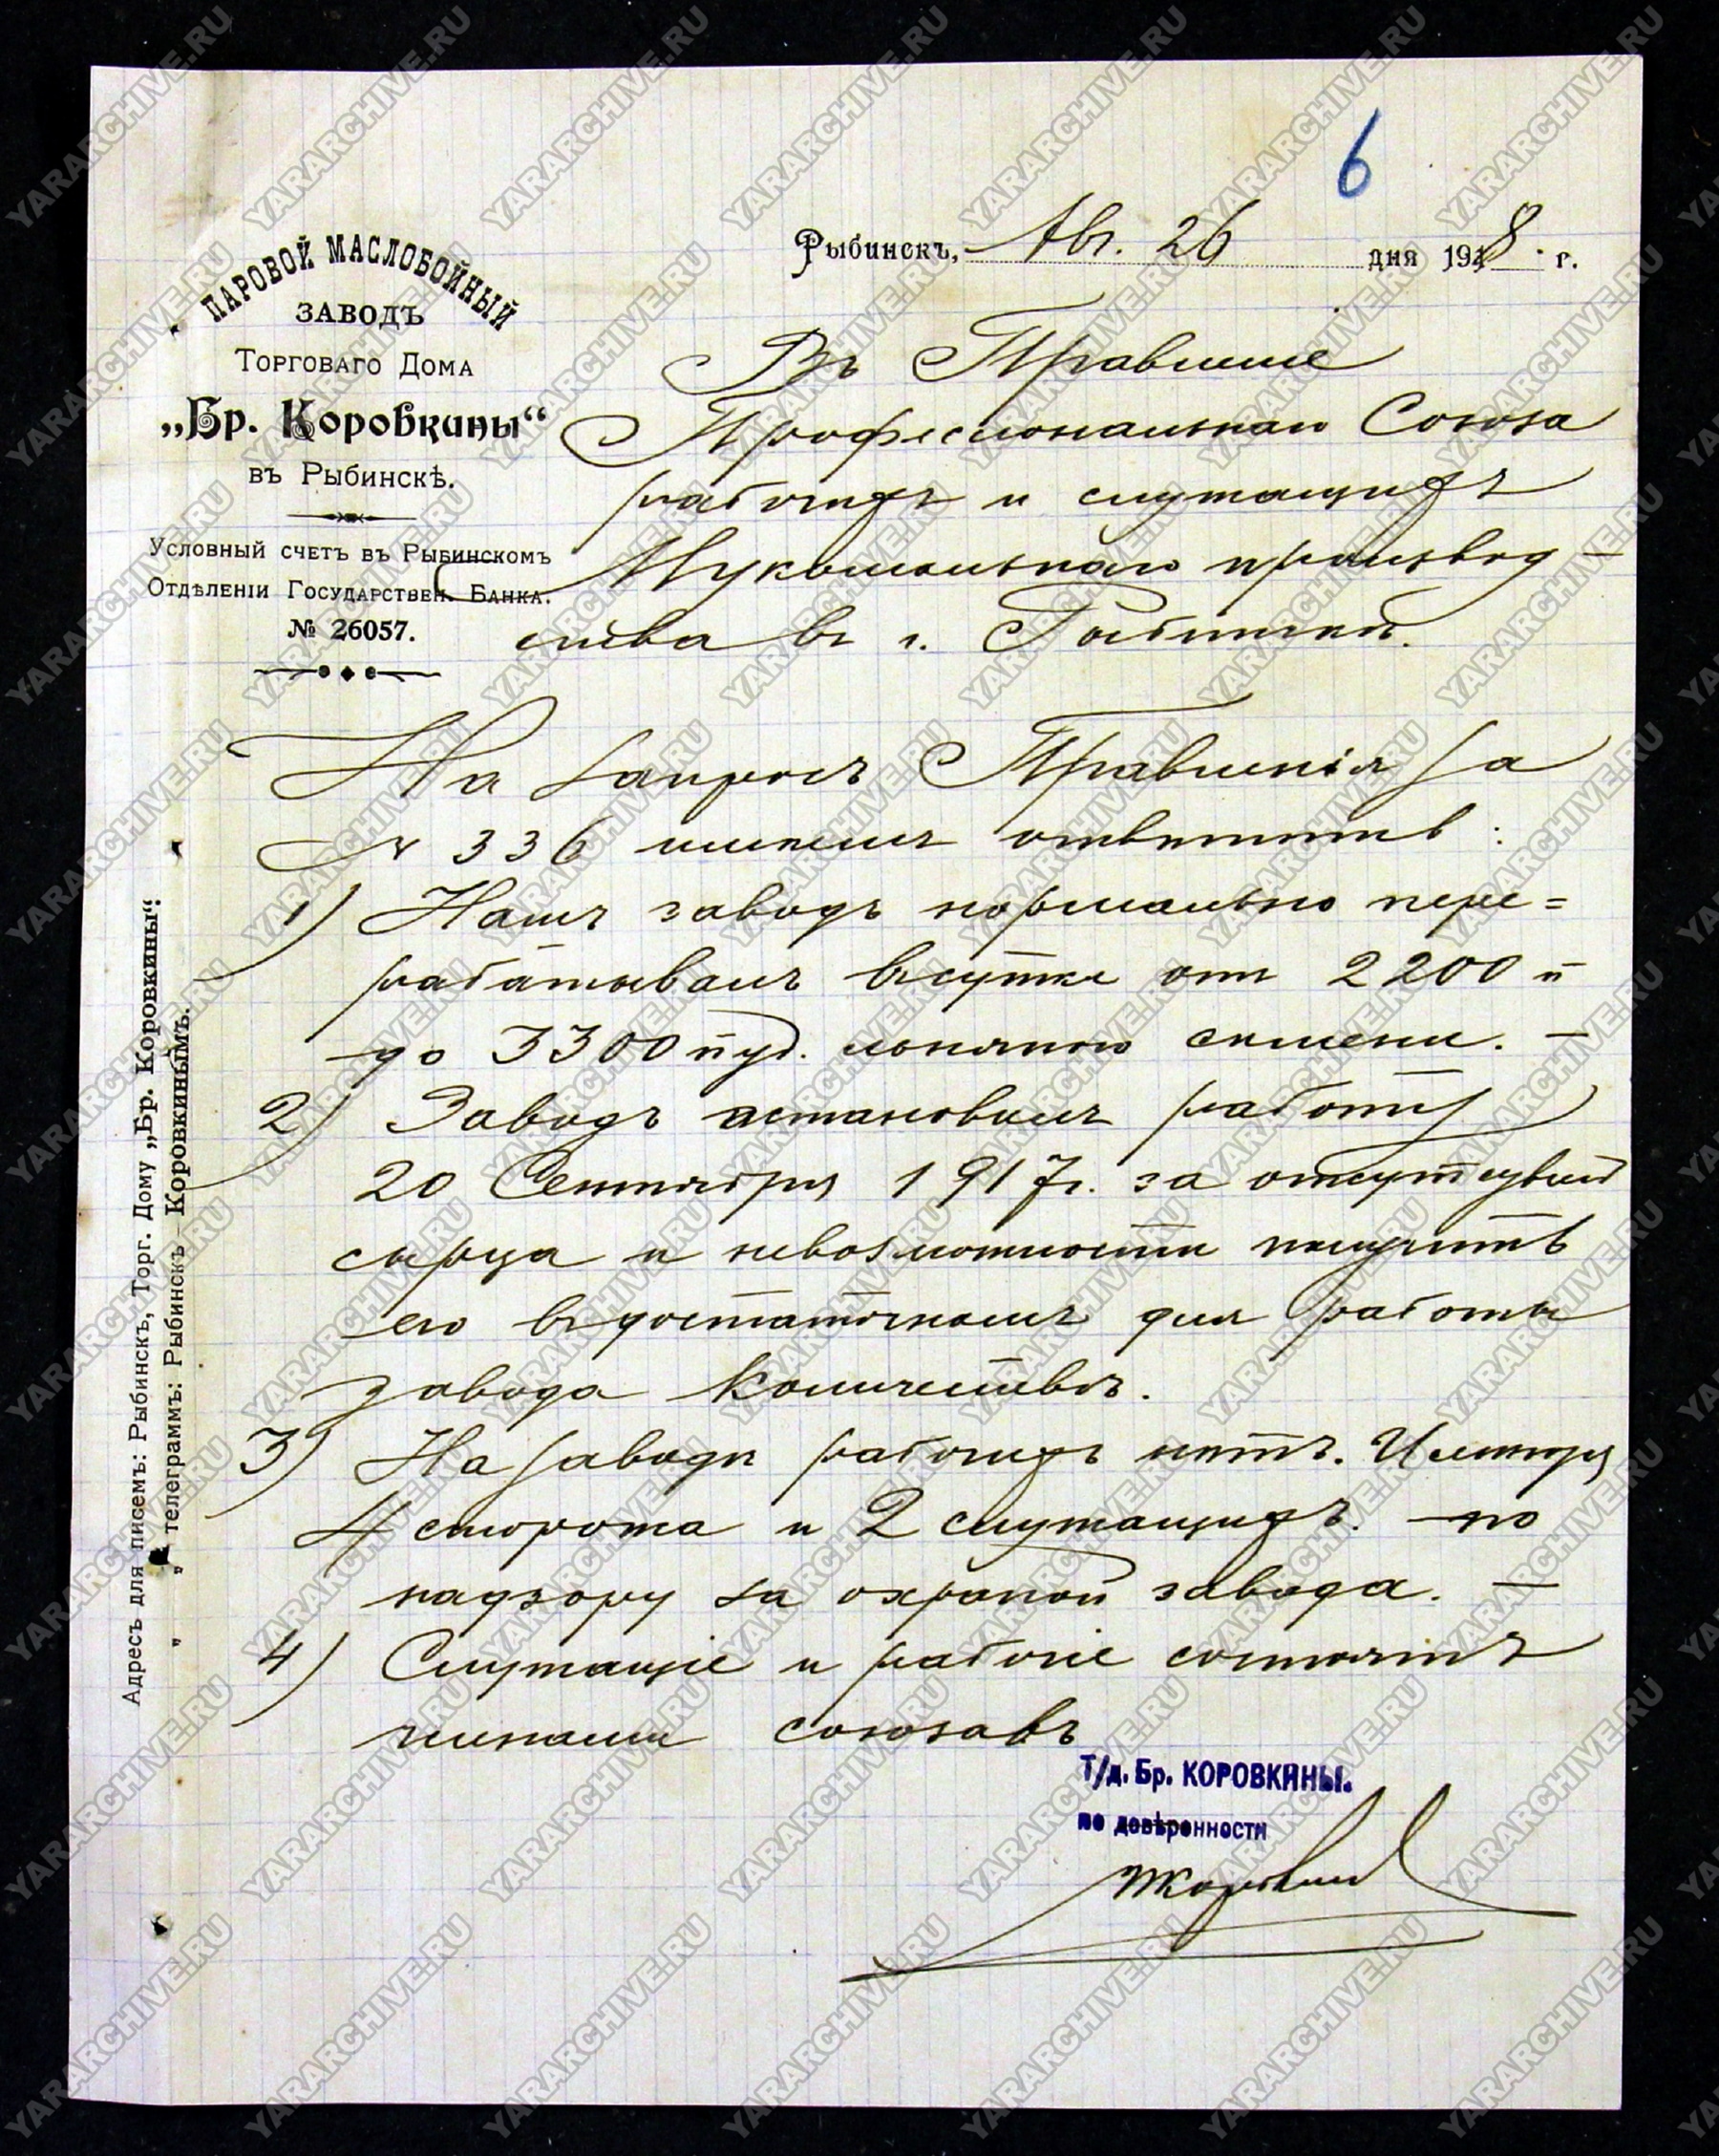 6
Рыбинскъ, Авг. 26 дня 1918 г.
ПАРОВОЙ МАСЛОБОЙНЫЙ
ЗАВОДЪ
ТОРГОВАГО ДОМА
„Бр. Коровкины“
въ Рыбинскѣ.
Условный счетъ въ Рыбинскомъ
Отдѣленіи Государствен. Банка.
№ 26057.
Въ Правленіе
Професіональнаго Союза
рабочихъ и служащихъ
Мукомольнаго производ-
ства въ г. Рыбинскѣ.
На запросъ Правленія за
№ 336 имѣемъ отвѣтить:
1) Нашъ заводъ нормально пере=
рабатывалъ въ сутки отъ 2200 п
до 3300 пуд. льняного сѣмени. —
2) Заводъ астановилъ работу
20 Сентября 1917 г. за отсутствіемъ
сырца и невозможности получить
его въ достаточномъ для работы
завода количествѣ.
3) На заводѣ рабочихъ нѣтъ. Имѣются
4 сторожа и 2 служащихъ. по
надзору за охраной завода. —
4) Служащіе и рабочіе состоятъ
членами союзовъ
Т/д. Бр. КОРОВКИНЫ.
по довѣренности
Адресъ для писемъ: Рыбинскъ, Торг. Дому „Бр. Коровкины“.
„ „ телеграммъ: Рыбинскъ Коровкинымъ.
YARARCHIVE.RU